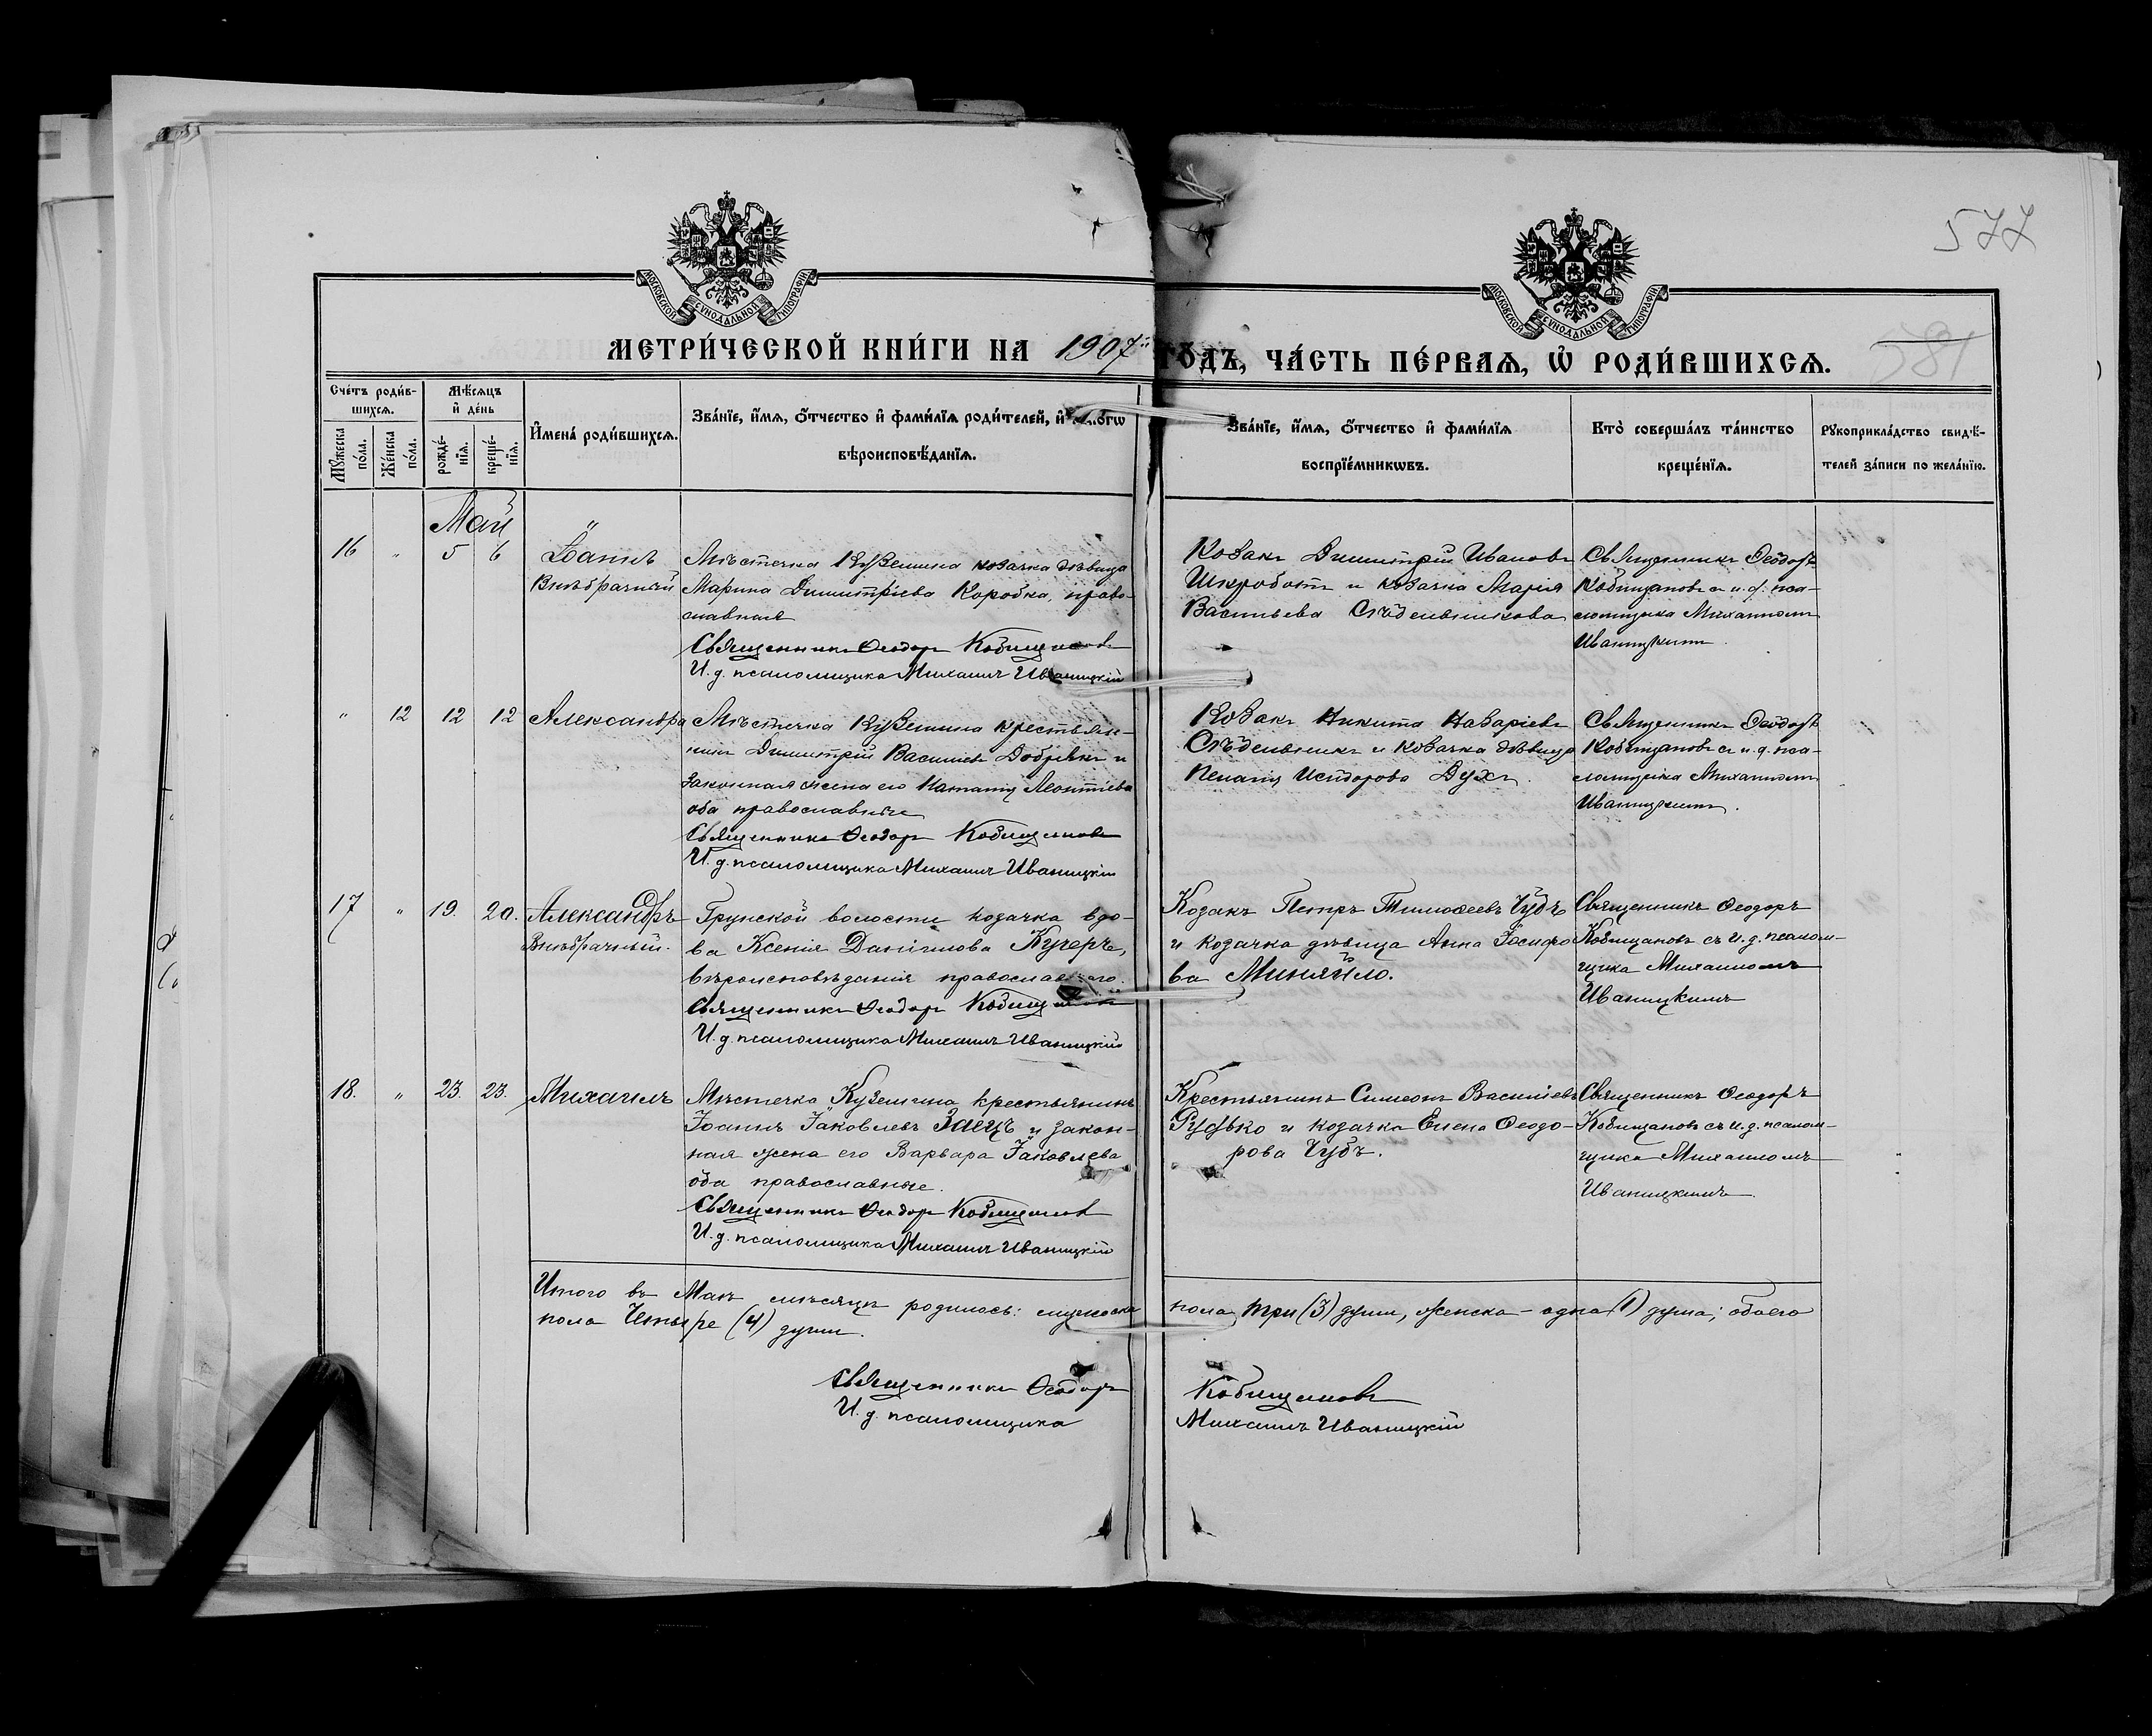 577
581
МОСКОВСКОЙ СѴНОДАЛЬНОЙ ТИПОГРАФІИ
МОСКОВСКОЙ СѴНОДАЛЬНОЙ ТИПОГРАФІИ
МЕТРИ́ЧЕСКОЙ КНИ́ГИ НА 1907й ГО́ДЪ, ЧА́СТЬ ПЕ́РВАѦ, Ѡ҆ РОДИ́ВШИХСѦ.
Сче́тъ роди́в-
шихсѧ.
Мꙋ́жеска
по́ла.
Же́нска
по́ла.
Мѣ́сѧцъ
и҆ де́нь
рожде́-
нїѧ.
креще́-
нїѧ.
И҆мена̀ роди́вшихсѧ.
Зва́нїе, и҆́мѧ, ѻ҆́тчество и҆ фами́лїѧ роди́телей, и҆
вѣроисповѣ́данїѧ.
Зва́нїе, и҆́мѧ, ѻ҆́тчество и҆ фами́лїѧ
воспрїе́мникѡвъ.
Кто̀ соверша́лъ та́инство
креще́нїѧ.
Рꙋкоприкла́дство свидѣ́-
телей за́писи по жела́нїю.
Май
16 " 5 6
Іоаннъ
Внѣбрачный
Мѣстечка Куземина козачка дѣвица
Марина Димитріева Коробка, право-
славная
Священникъ Ѳеодоръ Кобищановъ
И. д. псаломщика Михаилъ Иваницкій
Козакъ Димитрій Ивановъ
Шкроботъ и козачка Марія
Васильева Слѣдевникова
Священникъ Ѳеодоръ
Кобищановъ съ и. д. пса-
ломщика Михаиломъ
Иваницкимъ
" 12 12 12
Александра
Мѣстечка Куземина крестьян-
инъ Димитрій Василіевъ Добрякъ и
законная жена его Наталія Леонтіева
оба православные
Священникъ Ѳеодоръ Кобищановъ
И. д. псаломщика Михаилъ Иваницкій
Козакъ Никита Назаріевъ
Слѣдевникъ и козачка дѣвица
Пелагія Исидорова Духъ.
Священникъ Ѳеодоръ
Кобищановъ съ и. д. пса-
ломщика Михаиломъ
Иваницкимъ.
17 " 19. 20.
Александръ
Внѣбрачный.
Грунской волости козачка вдо-
ва Ксенія Даніилова Кучеръ,
вѣроисповѣданія православнаго.
Священникъ Ѳеодоръ Кобищановъ
И. д. псаломщика Михаилъ Иваницкій
Козакъ Петръ Тимоѳеевъ Чубъ
и козачка дѣвица Анна Іосифо-
ва Миняйло.
Священникъ Ѳеодоръ
Кобищановъ съ и. д. псалом-
щика Михаиломъ
Иваницкимъ
18. " 23. 23.
Михаилъ
Мѣстечка Куземина крестьянинъ
Іоаннъ Іаковлевъ Заецъ и закон-
ная жена его Варвара Іаковлева
оба православные.
Священникъ Ѳеодоръ Кобищановъ
И. д. псаломщика Михаилъ Иваницкій
Крестьянинъ Симеонъ Василіевъ
Рудько и козачка Елена Ѳеодо-
рова Чубъ.
Священникъ Ѳеодоръ
Кобищановъ съ и. д. псалом-
щика Михаиломъ
Иваницкимъ
Итого въ Маѣ мѣсяцѣ родилось: мужеска пола три (3) души, женска - одна (1) душа; обоего
пола Четыре (4) души.
Священникъ Ѳеодоръ Кобищановъ
И. д. псаломщика Михаилъ Иваницкій